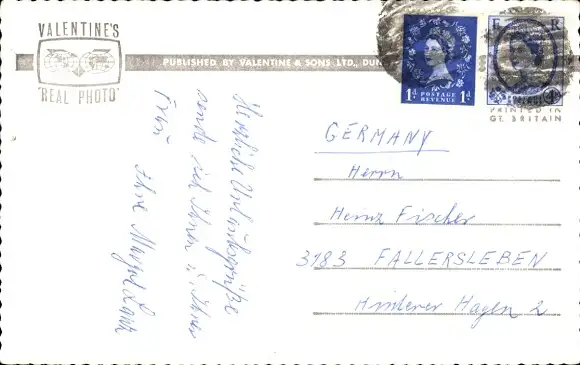 VALENTINE'S
"REAL PHOTO"
PUBLISHED BY VALENTINE & SONS LTD., DUN
1d POSTAGE REVENUE 1d
E R
PRINTED IN
GT. BRITAIN
Herzliche Urlaubsgrüße
sende ich Ihnen u. Ihrer
Frau
Ihre
GERMANY
Herrn
Heinz Fischer
3183 FALLERSLEBEN
Hinterer Hagen 2